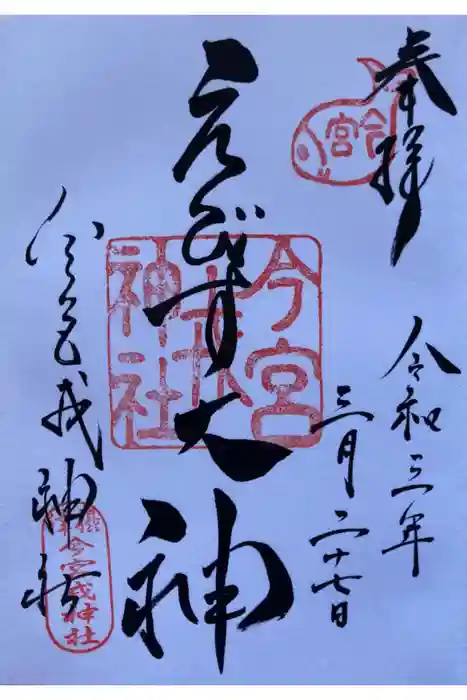 奉拝
今宮
令和三年
三月二十七日
えびす大神
今宮戎神社
今宮戎神社
今宮戎神社